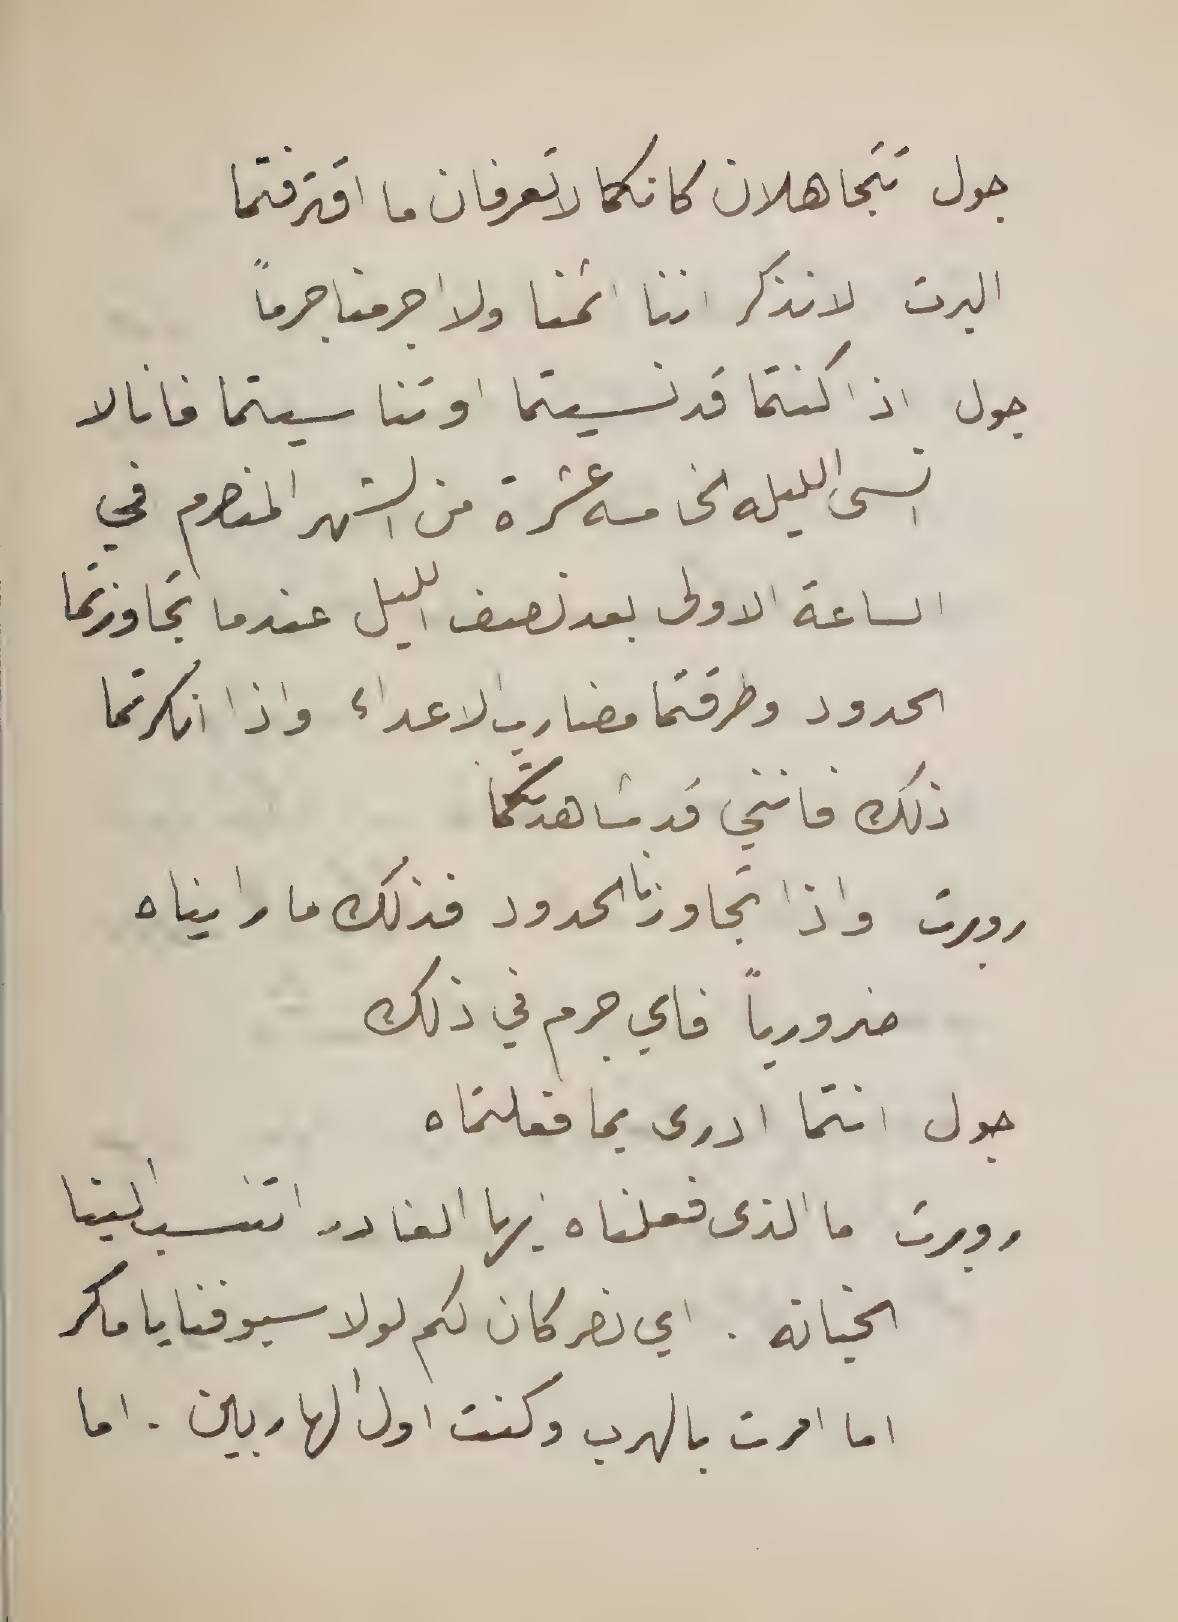 جول تتجاهلان كانكما لا تعرفان ما اقترفتما
البرت لا نذكر اننا اثمنا ولا اجرمنا جرماً
جول اذا كنتما قد نسيتما او تناسيتما فانا لا
انسى الليله الخامسه عشرة من الشهر المنصرم في
الساعة الاولى بعد نصف الليل عندما تجاوزتما
الحدود وطرقتما مضارب الاعداء واذا انكرتما
ذلك فانني قد شاهدتكما
روبرت واذا تجاوزنا الحدود فذلك ما رايناه
ضرورياً فاي جرم في ذلك
جول انتما ادرى بما فعلتماه
روبرت ما الذى فعلناه ايها الغادر اتنسب الينا
الخيانه . اي نصر كان لكم لولا سيوفنا يا ماكر
اما امرت بالهرب وكنت اول الهاربين . اما